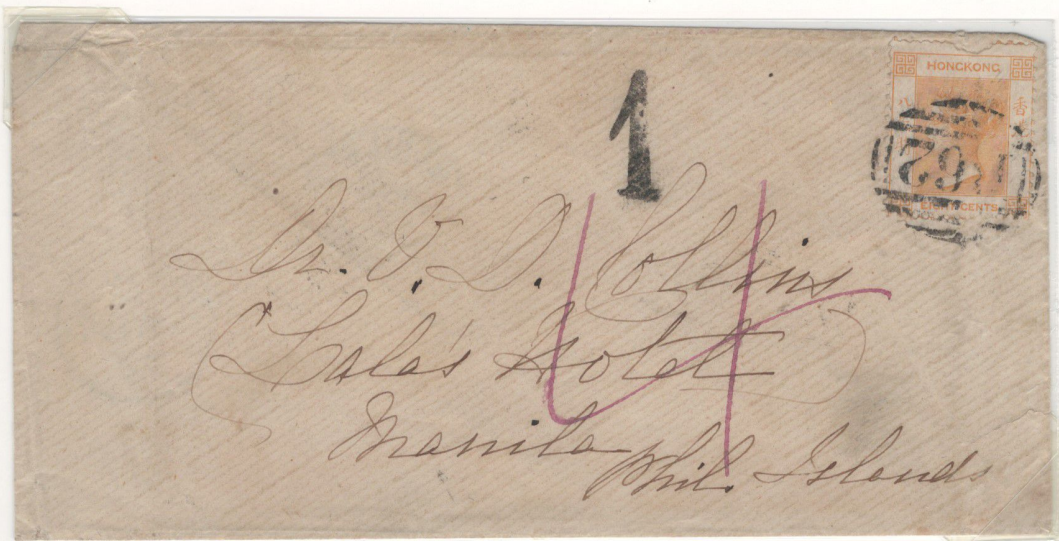 HONGKONG
1
EIGHT CENTS
Dr. O. D. Collins
(Lala's Hotel)
Manila
Phil. Islands
4